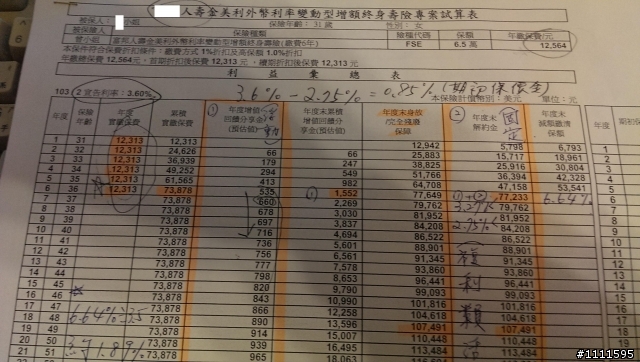 人壽金美利外幣利率變動型增額終身壽險專案試算表
被保人: 小姐 保險年齡: 31 歲 性別: 女
被保險人 保險種類 險種代碼 保額 年繳保費/元
曾小姐 人壽金美利外幣利率變動型增額終身壽險(繳費6年) FSE 6.5 萬 12,564
本保件符合保費折扣條件: 繳費方式 1%折扣及高保額 1.0%折扣
年繳總保費 12,564 元, 首期折扣後保費 12,313 元, 續期折扣後保費 12,313 元
利 益 彙 總 表
3.6% - 2.75% = 0.85% (期初保價金)
103 (2 宣告利率: 3.60% 本保險計價幣別: 美元 單位: 元
年度 保險年齡 年度實繳保費 累積實繳保費 ① 年度增值回饋分享金(預估值) 年度末累積增值回饋分享金(預估值) 年度末身故/完全殘廢保障 ② 年度末解約金 固定 年度末減額繳清保額 年度
1 31 12,313 12,313 12,942 5,798 6,793 1
2 32 12,313 24,626 66 66 25,883 15,717 18,961 2
3 33 12,313 36,939 179 247 38,825 25,916 30,804 3
4 34 12,313 49,252 294 549 51,766 36,394 42,328 4
5 35 12,313 61,565 413 982 64,708 47,158 53,541 5
6 36 12,313 73,878 535 ① 1,552 77,649 ①+② 77,233 6.64% 6
7 37 73,878 660 2,269 79,762 79,762 7
8 38 73,878 678 3,030 81,952 81,952 8
9 39 73,878 697 3,837 84,208 2.75% 84,208 9
10 40 73,878 716 4,694 86,522 86,522 10
11 41 73,878 736 5,601 88,901 88,901 11
12 42 73,878 756 6,561 91,345 91,345 12
13 43 73,878 777 7,578 93,860 複 93,860 13
14 44 73,878 798 8,653 96,441 96,441 14
15 45 73,878 820 9,790 99,093 利 99,093 15
16 46 73,878 843 10,990 101,816 101,816 16
17 47 73,878 866 12,258 104,618 類 104,618 17
18 48 73,878 890 13,596 107,491 107,491 18
19 49 73,878 914 15,009 110,448 110,448 19
20 50 73,878 939 16,495 113,484 活 113,484 20
21 51 965 18,063 21
6.64% ÷ 3.5
≒ 1.89%
#1111595